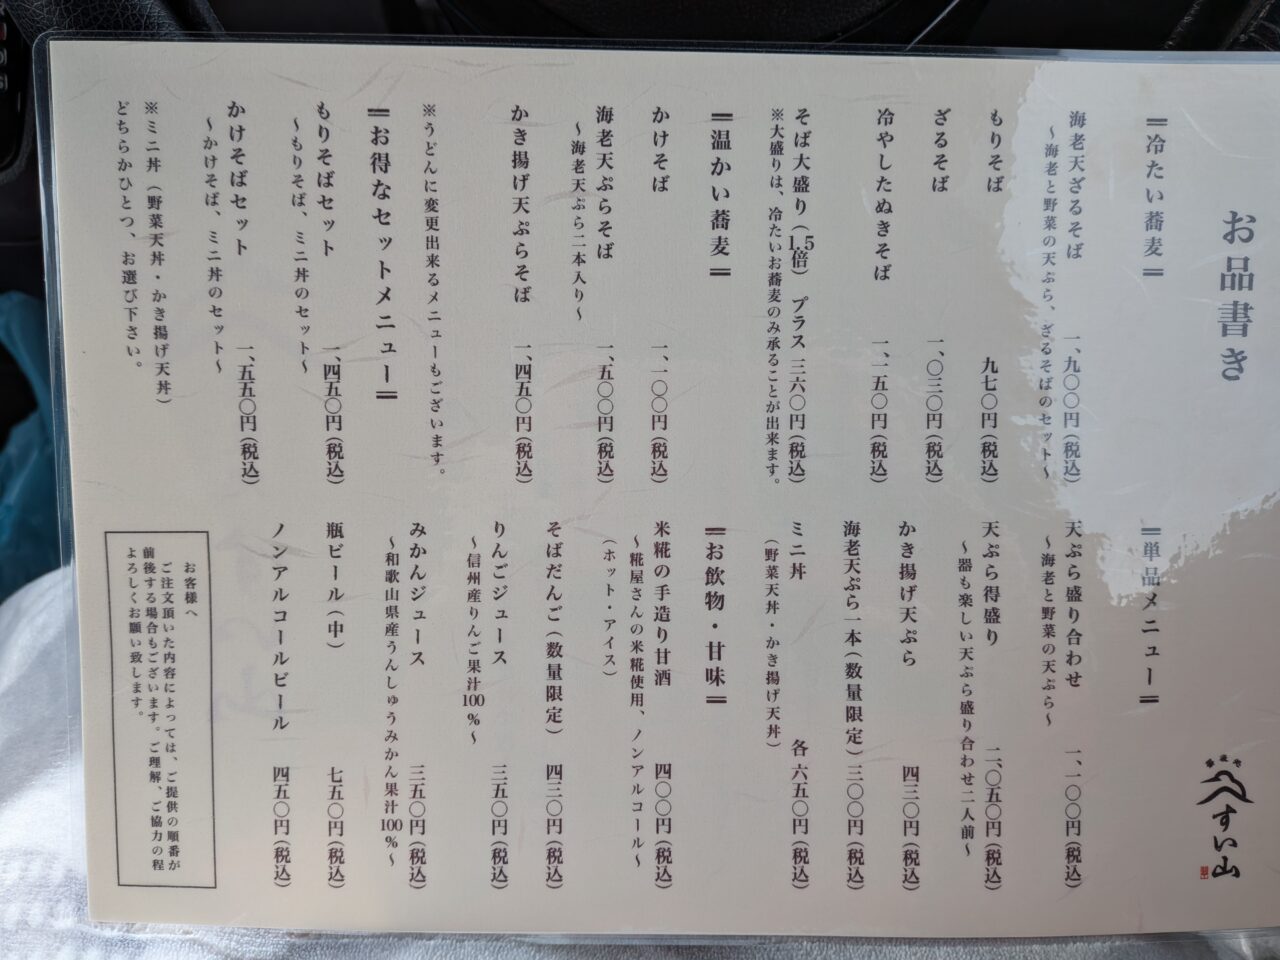 お品書き
すい山
＝冷たい蕎麦＝
海老天ざるそば 一、九〇〇円（税込）
～海老と野菜の天ぷら、ざるそばのセット～
もりそば 九七〇円（税込）
ざるそば 一、〇三〇円（税込）
冷やしたぬきそば 一、一五〇円（税込）
そば大盛り（1.5倍） プラス 三六〇円（税込）
※大盛りは、冷たいお蕎麦のみ承ることが出来ます。
＝温かい蕎麦＝
かけそば 一、一〇〇円（税込）
海老天ぷらそば 一、五〇〇円（税込）
～海老天ぷら二本入り～
かき揚げ天ぷらそば 一、四五〇円（税込）
※うどんに変更出来るメニューもございます。
＝お得なセットメニュー＝
もりそばセット 一、四五〇円（税込）
～もりそば、ミニ丼のセット～
かけそばセット 一、五五〇円（税込）
～かけそば、ミニ丼のセット～
※ミニ丼（野菜天丼・かき揚げ天丼）
どちらかひとつ、お選び下さい。
＝単品メニュー＝
天ぷら盛り合わせ 一、一〇〇円（税込）
～海老と野菜の天ぷら～
天ぷら得盛り 二、〇五〇円（税込）
～器も楽しい天ぷら盛り合わせ二人前～
かき揚げ天ぷら 四三〇円（税込）
海老天ぷら一本（数量限定） 三〇〇円（税込）
ミニ丼 各 六五〇円（税込）
（野菜天丼・かき揚げ天丼）
＝お飲物・甘味＝
米糀の手造り甘酒 四〇〇円（税込）
～糀屋さんの米糀使用、ノンアルコール～
（ホット・アイス）
そばだんご（数量限定） 四三〇円（税込）
りんごジュース 三五〇円（税込）
～信州産りんご果汁100%～
みかんジュース 三五〇円（税込）
～和歌山県産うんしゅうみかん果汁100%～
瓶ビール（中） 七五〇円（税込）
ノンアルコールビール 四五〇円（税込）
お客様へ
ご注文頂いた内容によっては、ご提供の順番が
前後する場合もございます。ご理解、ご協力の程
よろしくお願い致します。